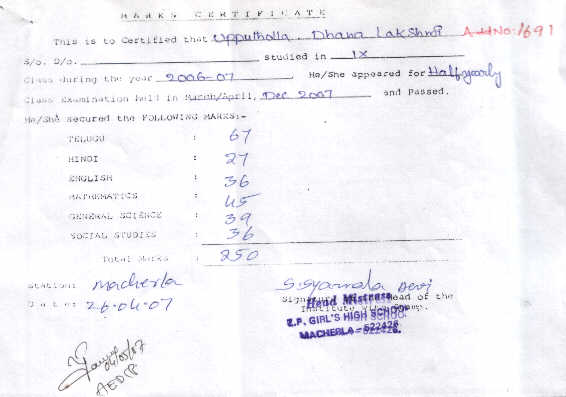 MARKS CERTIFICATE
This is to Certified that Upputholla. Dhana Lakshmi AdNo:1691
S/o. D/o. studied in IX
Class during the year 2006-07 He/She appeared for Halfyearly
Class Examination held in March/April, Dec 2007 and Passed.
He/She secured the FOLLOWING MARKS:-
TELUGU : 67
HINDI : 27
ENGLISH : 36
MATHEMATICS : 45
GENERAL SCIENCE : 39
SOCIAL STUDIES : 36
Total Marks : 250
Station: Macherla S. Syamala Devi
Date: 26-04-07 Head of the
Head Mistress
Institute with
Z.P. GIRL'S HIGH SCHOOL
MACHERLA - 522426.
04/05/07